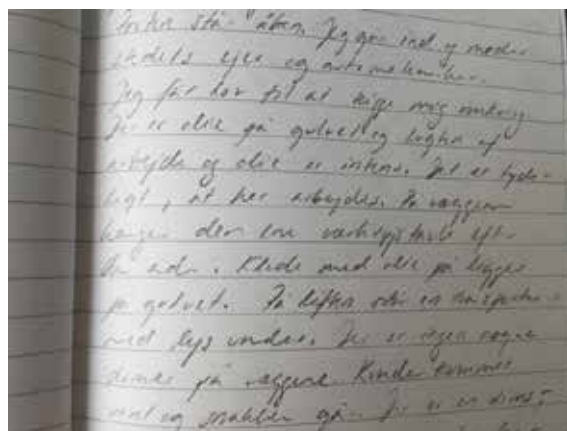 står åben. Jeg går ind og møder
stedets ejer og automekaniker.
Jeg får lov til at kigge mig omkring
Der er olie på gulvet og lugten af
arbejde og olie er intens. Det er tyde-
ligt, at her arbejdes. På væggen
hænger den ene efter
den anden. Klude med olie på ligger
på gulvet. På liften står en
med lys under. Der er ingen
damer på væggene. Kunder kommer
ind og snakker går. Der er en